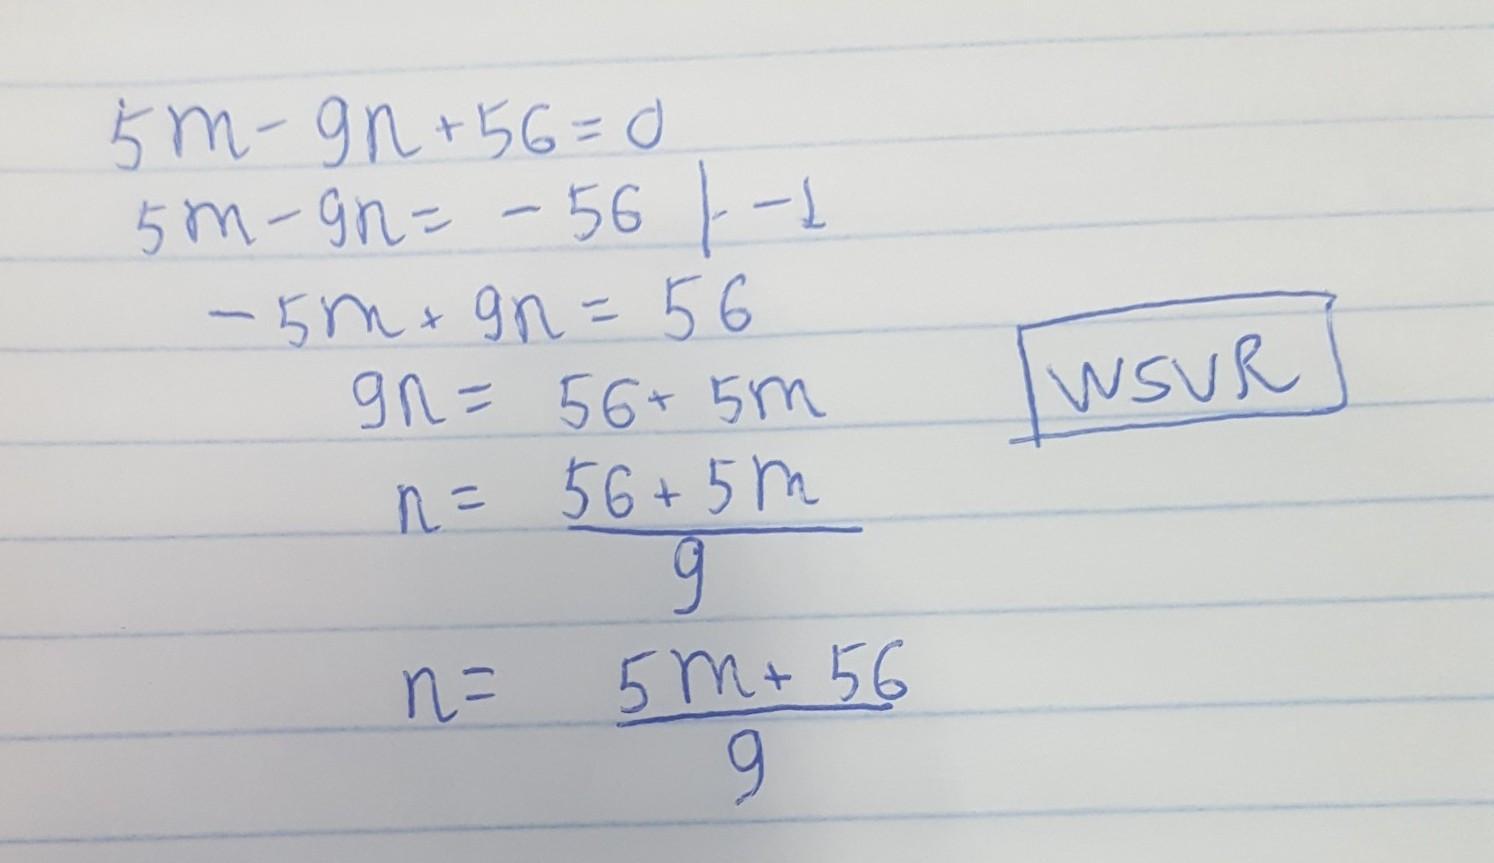 5m - 9n + 56 = 0
5m - 9n = - 56 | · -1
- 5m + 9n = 56
9n = 56 + 5m
WSVR
n = 56 + 5m
9
n = 5m + 56
9